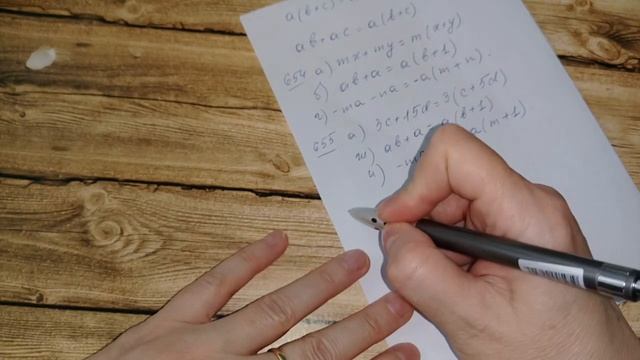 a(b+c)
ab+ac = a(b+c)
654 а) mx+my = m(x+y)
б) ab+a = a(b+1)
г) -ma-na = -a(m+n).
655 а) 3c+15d = 3(c+5d)
ж) ab+a = a(b+1)
и) a(m+1)